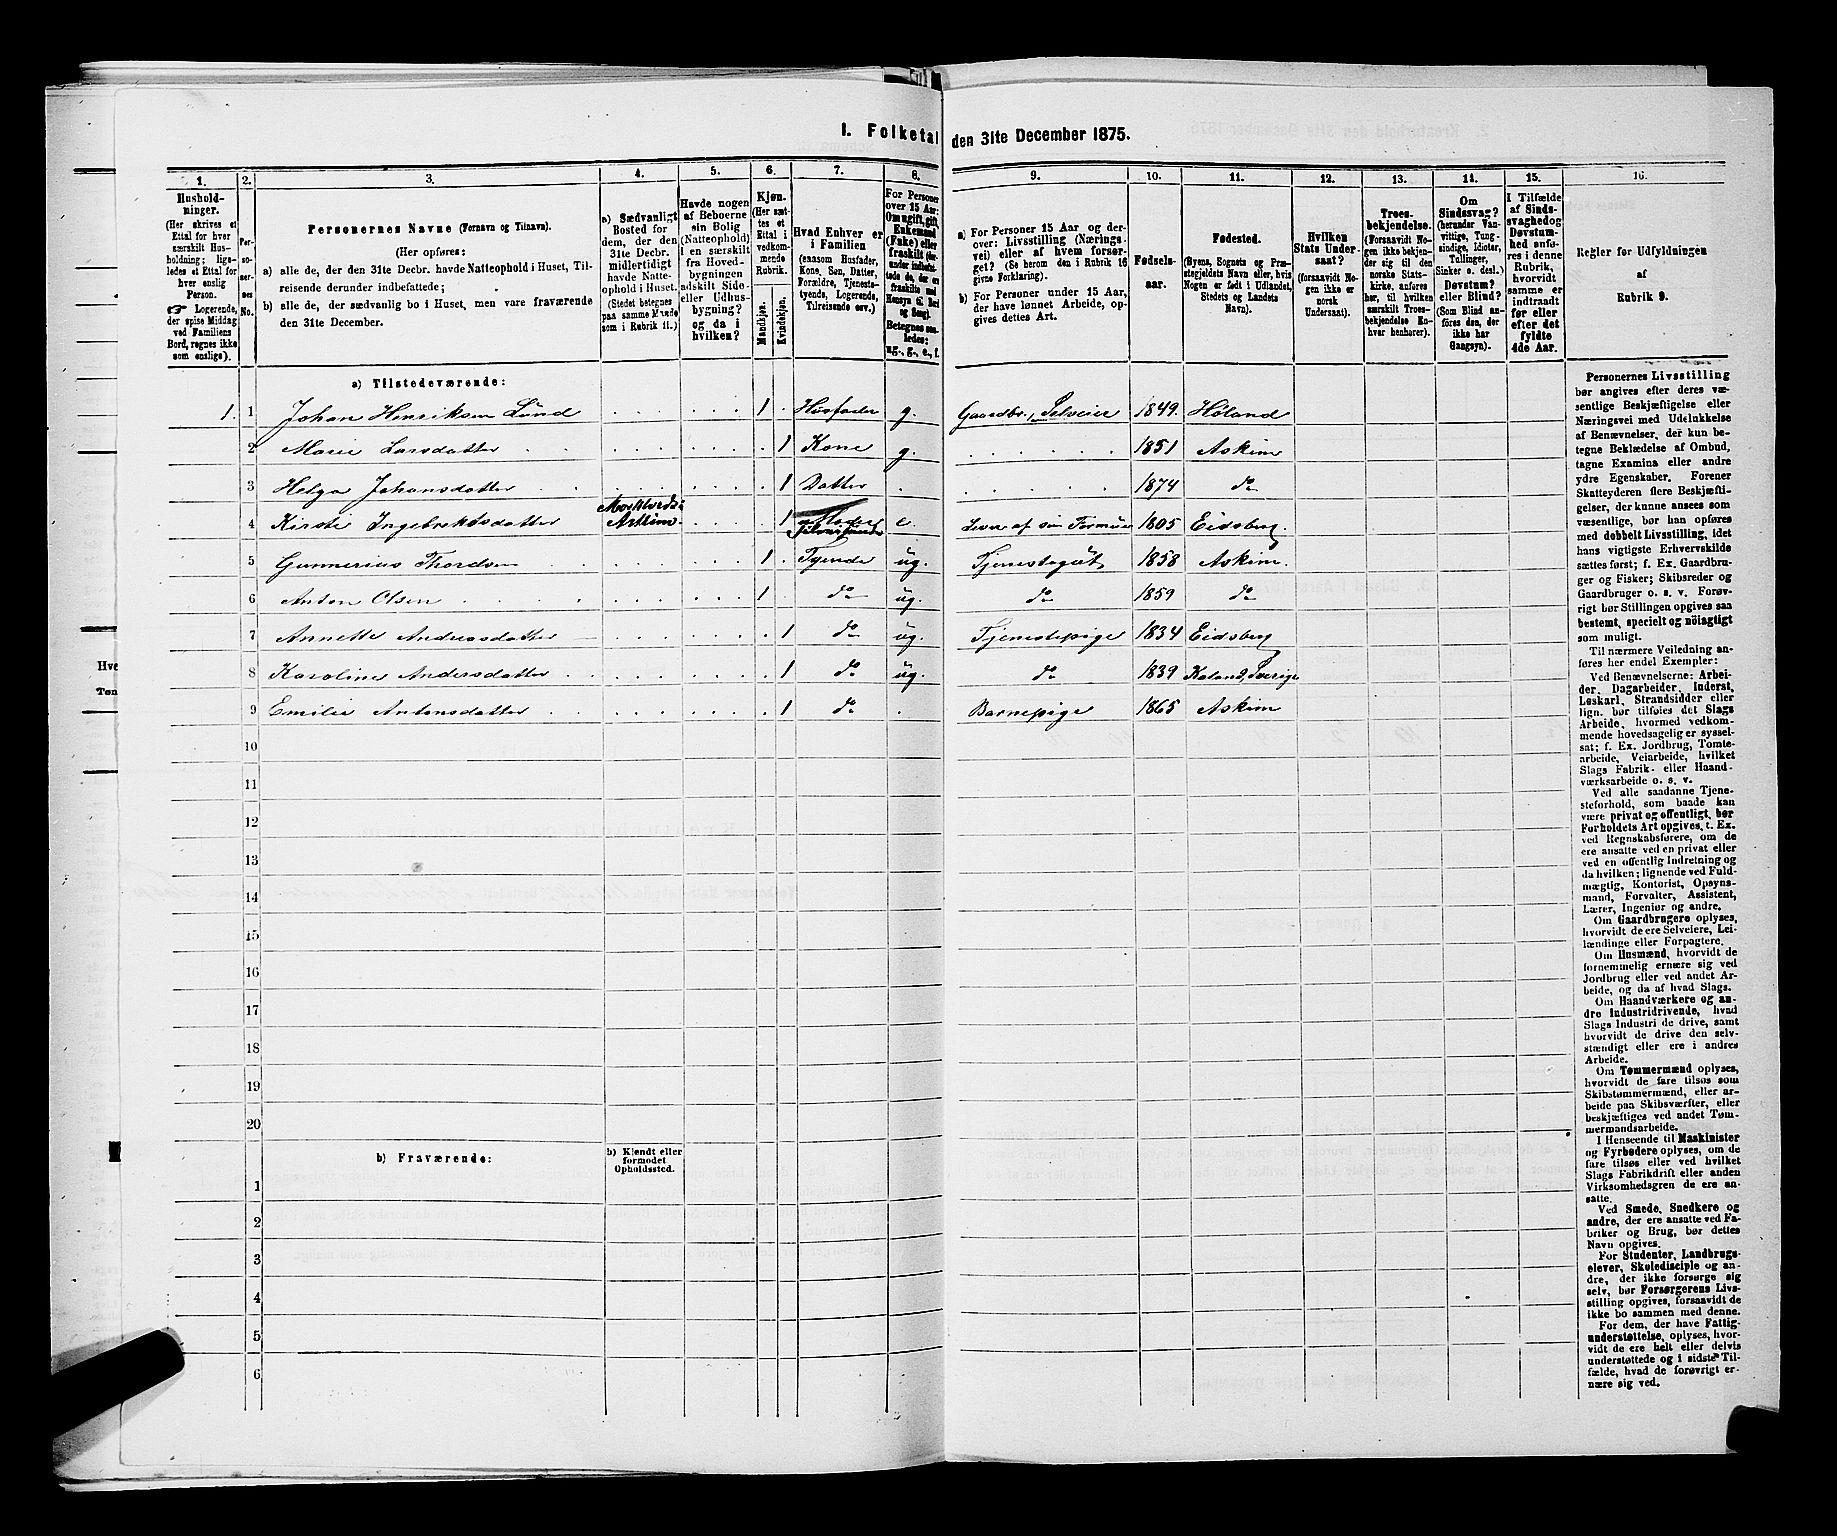 I. Folketal den 31te December 1875.
1. 2. 3. 4. 5. 6. 7. 8. 9. 10. 11. 12. 13. 14. 15. 16.
Hushold-
ninger.
(Her skrives et
Ettal for hver
særskilt Hus-
holdning; lige-
ledes et Ettal for
hver enslig
Person.
☞ Logerende,
der spise Middag
ved Familiens
Bord, regnes ikke
som enslige).
Per-
so-
ner-
nes
No.
Personernes Navne (Fornavn og Tilnavn).
(Her opføres:
a) alle de, der den 31te Decbr. havde Natteophold i Huset, Til-
reisende derunder indbefattede;
b) alle de, der sædvanlig bo i Huset, men vare fraværende
den 31te December.
a) Sædvanligt
Bosted for
dem, der den
31te Decbr.
midlertidigt
havde Natte-
ophold i Huset.
(Stedet betegnes
paa samme Maade
som i Rubrik 11.)
Havde nogen
af Beboerne
sin Bolig
(Natteophold)
i en særskilt
fra Hoved-
bygningen
adskilt Side-
eller Udhus-
bygning?
og da i
hvilken?
Kjøn.
(Her sæt-
tes et
Ettal i
vedkom-
mende
Rubrik.
Mandkjøn.
Kvindekjøn.
Hvad Enhver er
i Familien
(saasom Husfader,
Kone, Søn, Datter,
Forældre, Tjeneste-
tyende, Logerende,
Tilreisende osv.)
For Personer
over 15 Aar:
Om ugift, gift,
Enkemand
(Enke) eller
fraskilt
Betegnes saa-
ledes:
ug., g., e., f.
a) For Personer 15 Aar og der-
over: Livsstilling (Nærings-
vei) eller af hvem forsør-
get? (Se herom den i Rubrik 16
givne Forklaring).
b) For Personer under 15 Aar,
der have lønnet Arbeide, op-
gives dettes Art.
Fødsels-
aar.
Fødested.
(Byens, Sognets og Præ-
stegjeldets Navn eller, hvis
Nogen er født i Udlandet,
Stedets og Landets
Navn).
Hvilken
Stats Under-
saat?
(forsaavidt No-
gen ikke er
norsk
Undersaat).
Troes-
bekjendelse.
(Forsaavidt No-
gen ikke bekjen-
der sig til den
norske Stats-
kirke, anføres
her, til hvilken
særskilt Troes-
bekjendelse En-
hver henhører).
Om
Sindssvag?
(herunder Van-
vittige, Tung-
sindige, Idioter,
Tullinger,
Sinker o. desl.)
Døvstum?
eller Blind?
(Som Blind an-
føres den, der
ikke har
Gangsyn).
I Tilfælde
af Sinds-
svaghed og
Døvstum-
hed anfø-
res i denne
Rubrik,
hvorvidt
samme er
indtraadt
før eller
efter det
fyldte
4de Aar.
Regler for Udfyldningen
af
Rubrik 9.
a) Tilstedeværende:
1. 1 Johan Henriksen Lund 1 Husfader g. Gaardbr., Selveier 1849. Høland
2 Marie Larsdatter 1 Kone g. 1851 Askim
3 Helga Johansdatter 1 Datter 1874 do
4 Kirsti Ingebretsdatter Askim 1 e Lever af sin Formue 1805 Eidsberg
5 Gunnerius Thordsen 1 Tyende ug. Tjenestegut 1858 Askim
6 Anton Olsen 1 do ug. do 1859 do
7 Annette Andreasdatter 1 do ug. Tjenestepige 1834 Eidsberg
8 Karoline Andersdatter 1 do ug. do 1839 Koland, Sverige
9 Emilie Antonsdatter 1 do Barnepige 1865 Askim
10
11
12
13
14
15
16
17
18
19
20
b) Fraværende:
b) Kjendt eller
formodet
Opholdssted.
1
2
3
4
5
6
Personernes Livsstilling
bør angives efter deres væ-
sentlige Beskjæftigelse eller
Næringsvei med Udelukkelse
af Benævnelser, der kun be-
tegne Beklædelse af Ombud,
tagne Examina eller andre
ydre Egenskaber. Forener
Skatteyderen flere Beskjæfti-
gelser, der kunne ansees som
væsentlige, bør han opføres
med dobbelt Livsstilling, idet
hans vigtigste Erhvervskilde
sættes først; f. Ex. Gaardbru-
ger og Fisker; Skibsreder og
Gaardbruger o. s. v. Forøv-
rigt bør Stillingen opgives saa
bestemt, specielt og nöiagtigt
som muligt.
Til nærmere Veiledning an-
føres her endel Exempler:
Ved Benævnelserne: Arbei-
der, Dagarbeider, Inderst,
Løskarl, Strandsidder eller
lign. bør tilføies det Slags
Arbeide, hvormed vedkom-
mende hovedsagelig er syssel-
sat; f. Ex. Jordbrug, Tomte-
arbeide, Veiarbeide, hvilket
Slags Fabrik- eller Haand-
værksarbeide o. s. v.
Ved alle saadanne Tjene-
steforhold, som baade kan
være privat og offentligt, bør
Forholdets Art opgives, t. Ex.
ved Regnskabsførere, om de
ere ansatte ved en privat eller
ved en offentlig Indretning og
da hvilken; lignende ved Fuld-
mægtig, Kontorist, Opsyns-
mand, Forvalter, Assistent,
Lærer, Ingeniør og andre.
Om Gaardbrugere oplyses,
hvorvidt de ere Selveiere, Lei-
lændinge eller Forpagtere.
Om Husmænd, hvorvidt de
fornemmelig ernære sig ved
Jordbrug eller ved andet Ar-
beide, og da af hvad Slags.
Om Haandværkere og an-
dre Industridrivende, hvad
Slags Industri de drive, samt
hvorvidt de drive den selv-
stændigt eller ere i andres
Arbeide.
Om Tømmermænd oplyses,
hvorvidt de fare tilsøs som
Skibstømmermænd, eller ar-
beide paa Skibsværfter, eller
beskjæftiges ved andet Tøm-
mermandsarbeide.
I Henseende til Maskinister
og Fyrbødere oplyses, om de
fare tilsøs eller ved hvilket
Slags Fabrikdrift eller anden
Virksomhedsgren de ere an-
satte.
Ved Smede, Snedkere og
andre, der ere ansatte ved Fa-
briker og Brug, bør dettes
Navn opgives.
For Studenter, Landbrugs-
elever, Skoledisciple og an-
dre, der ikke forsørge sig
selv, bør Forsørgerens Livs-
stilling opgives, forsaavidt de
ikke bo sammen med denne.
For dem, der have Fattig-
understøttelse, oplyses, hvor-
vidt de ere helt eller delvis
understøttede og i sidste Til-
fælde, hvad de forøvrigt er-
nære sig ved.